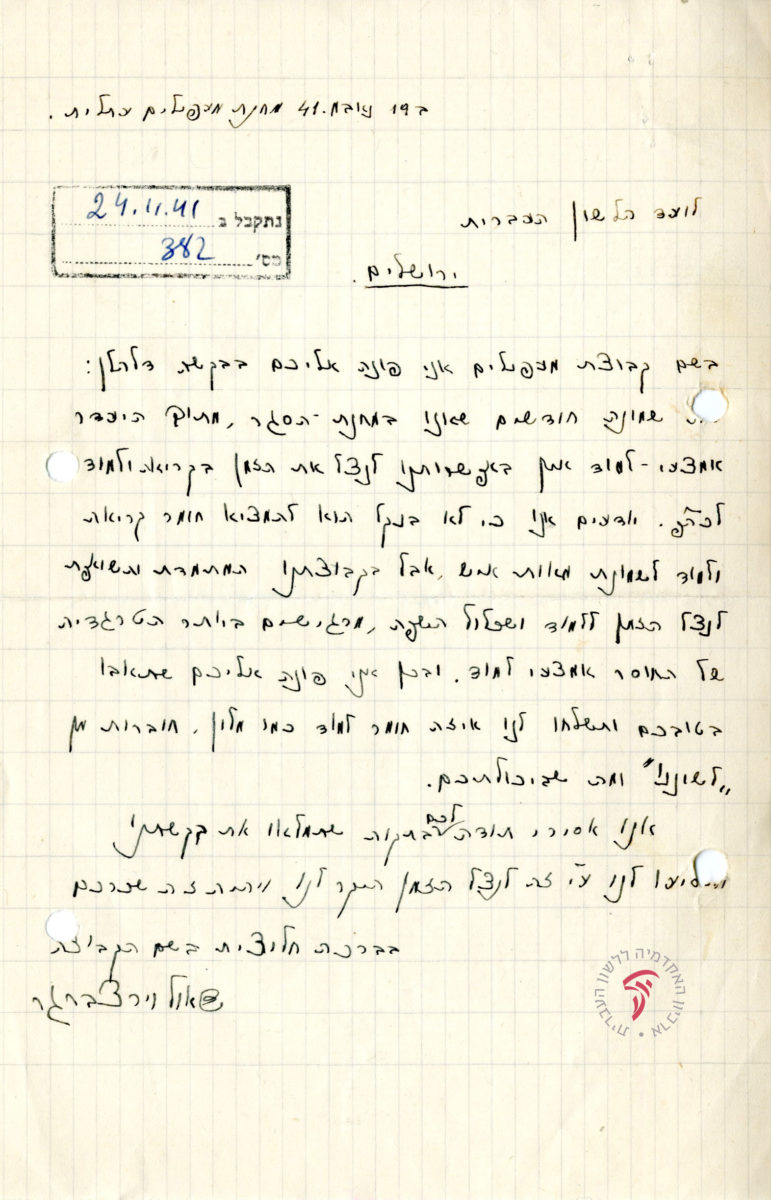 ב 19 נובמ. 41 מחנה מעפילים עתלית.
נתקבל ב 24.11.41
מס' 382
לועד הלשון העברית
ירושלים.
בשם קבוצת מעפילים אני פונה אליכם בבקשה דלהלן:
שמונה חודשים שאנו במחנה-הסגר, מתוך העדר
אמצעי-למוד אין באפשרותנו לנצל את הזמן בקריאה ולמוד
יודעים אנו כי לא בנקל הוא להמציא חומר קריאה
ולמוד לשמונה מאות איש, אבל בקבוצתנו המתמדת ושואפת
לנצל הזמן ללמוד ושכלול השפה, מרגישים ביותר הטרגדיה
של החוסר אמצעי למוד. ובכן אני פונה אליכם שתואבו
בטובכם ותשלחו לנו איזה חומר למוד כמו מלון, חוברות מן
„לשוננו" ומה שביכולתיכם.
אנו אסירי תודה לכם בתקוה שתמלאו את בקשתי
ותסיעו לנו ע"י זה לנצל הזמן היקר לנו ויהיה זה שכרכם
בברכה חלוצית בשם הקבוצה
שאול וירצברגר
ארכיון האקדמיה ללשון העברית